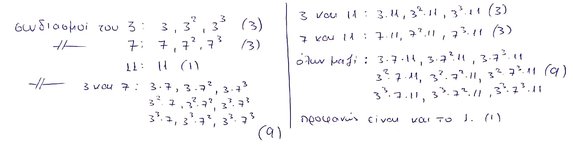 συνδιασμοί του 3: 3, 3², 3³ (3)
-//- 7: 7, 7², 7³ (3)
11: 11 (1)
-//- 3 και 7: 3·7, 3·7², 3·7³
3²·7, 3²·7², 3²·7³
3³·7, 3³·7², 3³·7³
(9)
3 και 11: 3·11, 3²·11, 3³·11 (3)
7 και 11: 7·11, 7²·11, 7³·11 (3)
όλων μαζί: 3·7·11, 3·7²·11, 3·7³·11
3²·7·11, 3²·7²·11, 3²·7³·11 (9)
3³·7·11, 3³·7²·11, 3³·7³·11
προφανώς είναι και το 1. (1)